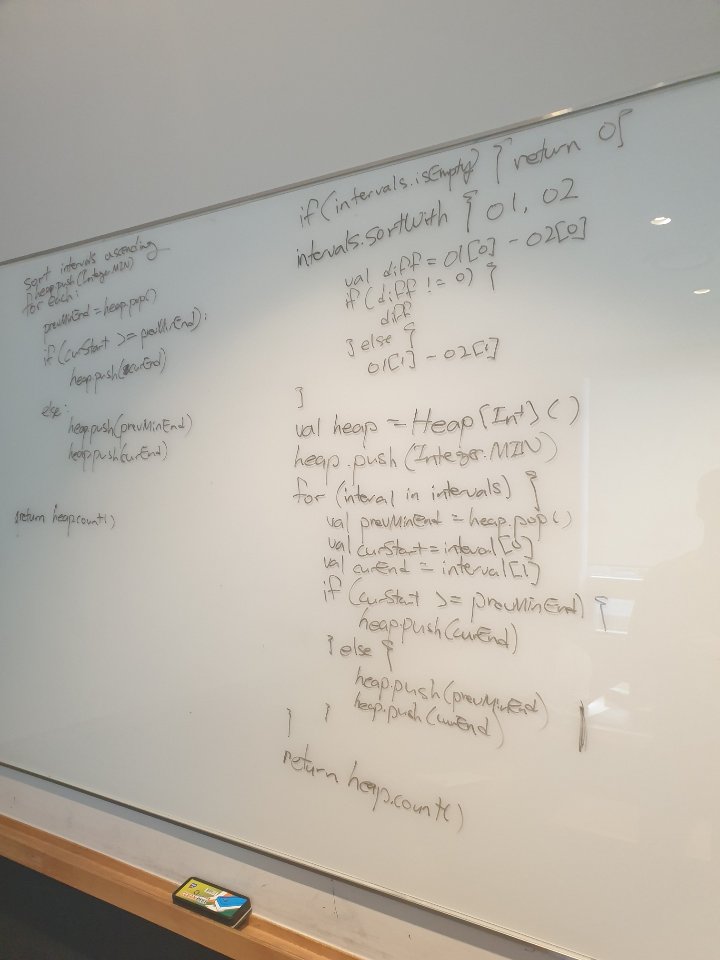 sort intervals ascending
heap.push(Integer.MIN)
for each:
prevMinEnd = heap.pop()
if (curStart >= prevMinEnd):
heap.push(curEnd)
else:
heap.push(prevMinEnd)
heap.push(curEnd)
return heap.count()
if (intervals.isEmpty) { return 0}
intervals.sortWith { o1, o2
val diff = o1[0] - o2[0]
if (diff != 0) {
diff
} else {
o1[1] - o2[1]
}
val heap = Heap[Int]()
heap.push(Integer.MIN)
for (interval in intervals) {
val prevMinEnd = heap.pop()
val curStart = interval[0]
val curEnd = interval[1]
if (curStart >= prevMinEnd) {
heap.push(curEnd)
} else {
heap.push(prevMinEnd)
heap.push(curEnd)
} }
return heap.count()